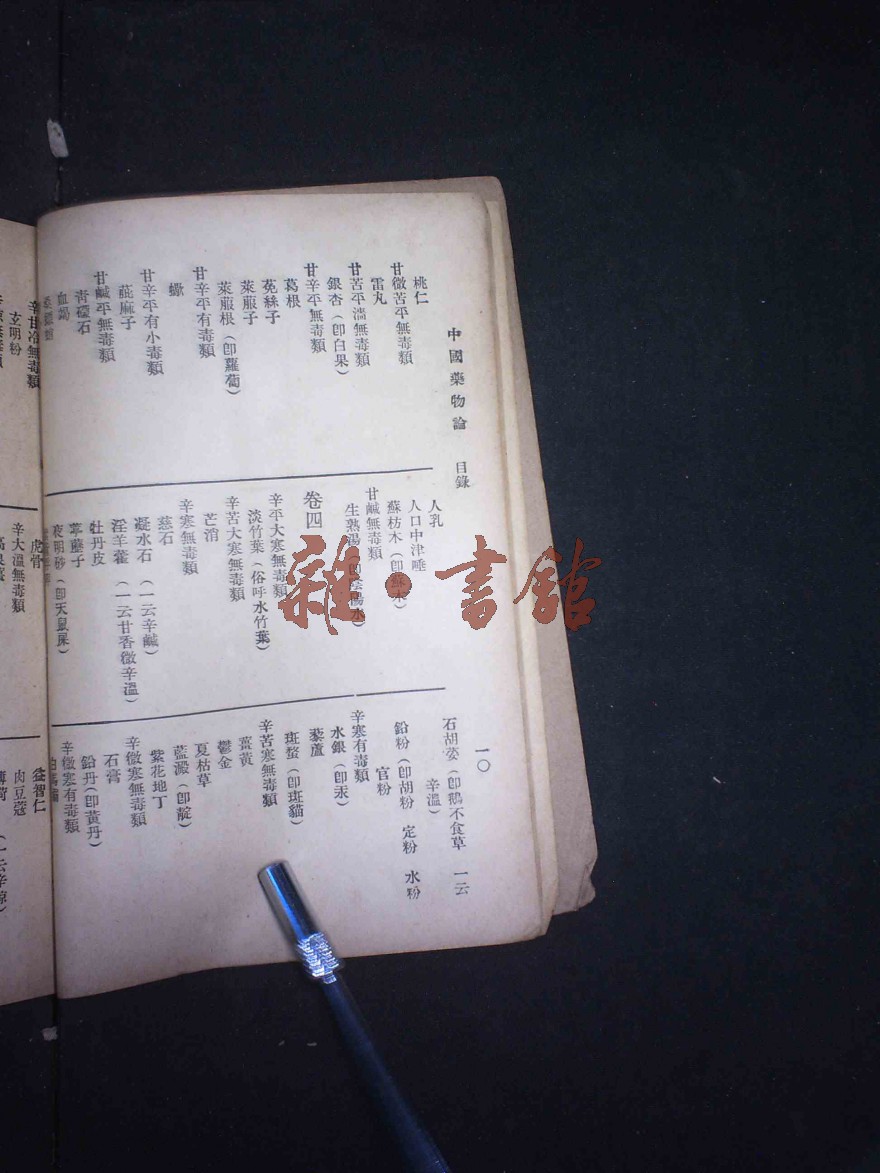 中國藥物論 目錄 一〇
桃仁
甘微苦平無毒類
雷丸
甘苦平濇無毒類
銀杏（卽白果）
甘辛平無毒類
葛根
菟絲子
萊菔子
萊菔根（卽蘿蔔）
甘辛平有毒類
蠍
甘辛平有小毒類
蓖麻子
甘鹹平無毒類
青礞石
血竭
人乳
人口中津唾
蘇枋木（卽蘇木）
甘鹹無毒類
生熟湯（卽陰陽水）
卷四
辛平大寒無毒類
淡竹葉（俗呼水竹葉）
辛苦大寒無毒類
芒消
辛寒無毒類
慈石
凝水石（一云辛鹹）
淫羊藿（一云甘香微辛溫）
牡丹皮
葶藶子
夜明砂（卽天鼠屎）
石胡荽（卽鵝不食草 一云
辛溫）
鉛粉（卽胡粉 定粉 水粉
官粉
辛寒有毒類
水銀（卽汞）
藜蘆
斑蝥（卽斑貓）
辛苦寒無毒類
薑黃
鬱金
夏枯草
藍澱（卽靛）
紫花地丁
辛微寒無毒類
石膏
鉛丹（卽黃丹）
辛微寒有毒類
辛甘冷無毒類
玄明粉
虎骨
辛大溫無毒類
益智仁
肉豆蔻
雜·書館